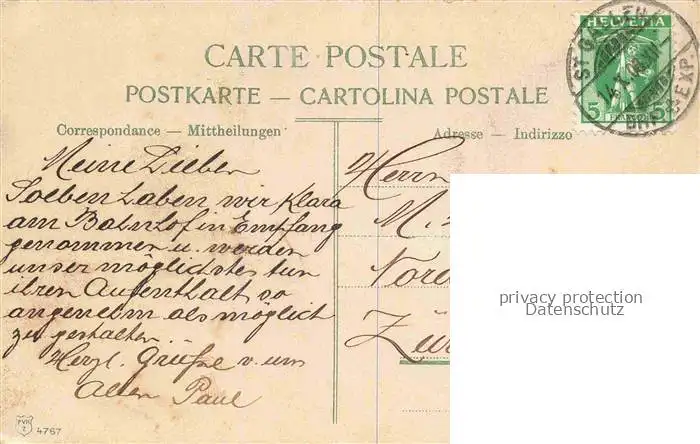 CARTE POSTALE
POSTKARTE — CARTOLINA POSTALE
Correspondance — Mittheilungen
Adresse — Indirizzo
HELVETIA
5 5
ST. GALLEN
EXP.
Meine Lieben
Soeben haben wir Klara
am Bahnhof in Empfang
genommen u. werden
unser möglichstes tun
ihren Aufenthalt so
angenehm als möglich
zu gestalten.
Herzl. Grüsse v. uns
Allen Paul
Herrn
M.
Zür
privacy protection
Datenschutz
4767